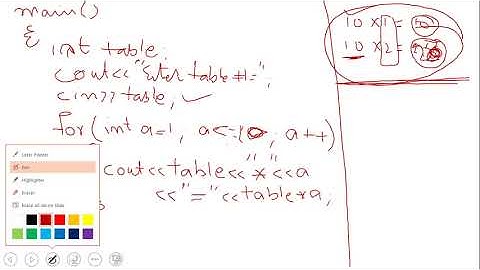 main()
{
int table;
cout<<"Enter table #=";
cin>>table;
for(int a=1, a<=10; a++)
cout<<table<<"*"<<a
<<"="<<table*a;
10 x 1 = 10
10 x 2 =
Laser Pointer
Pen
Highlighter
Eraser
Erase All Ink on Slide